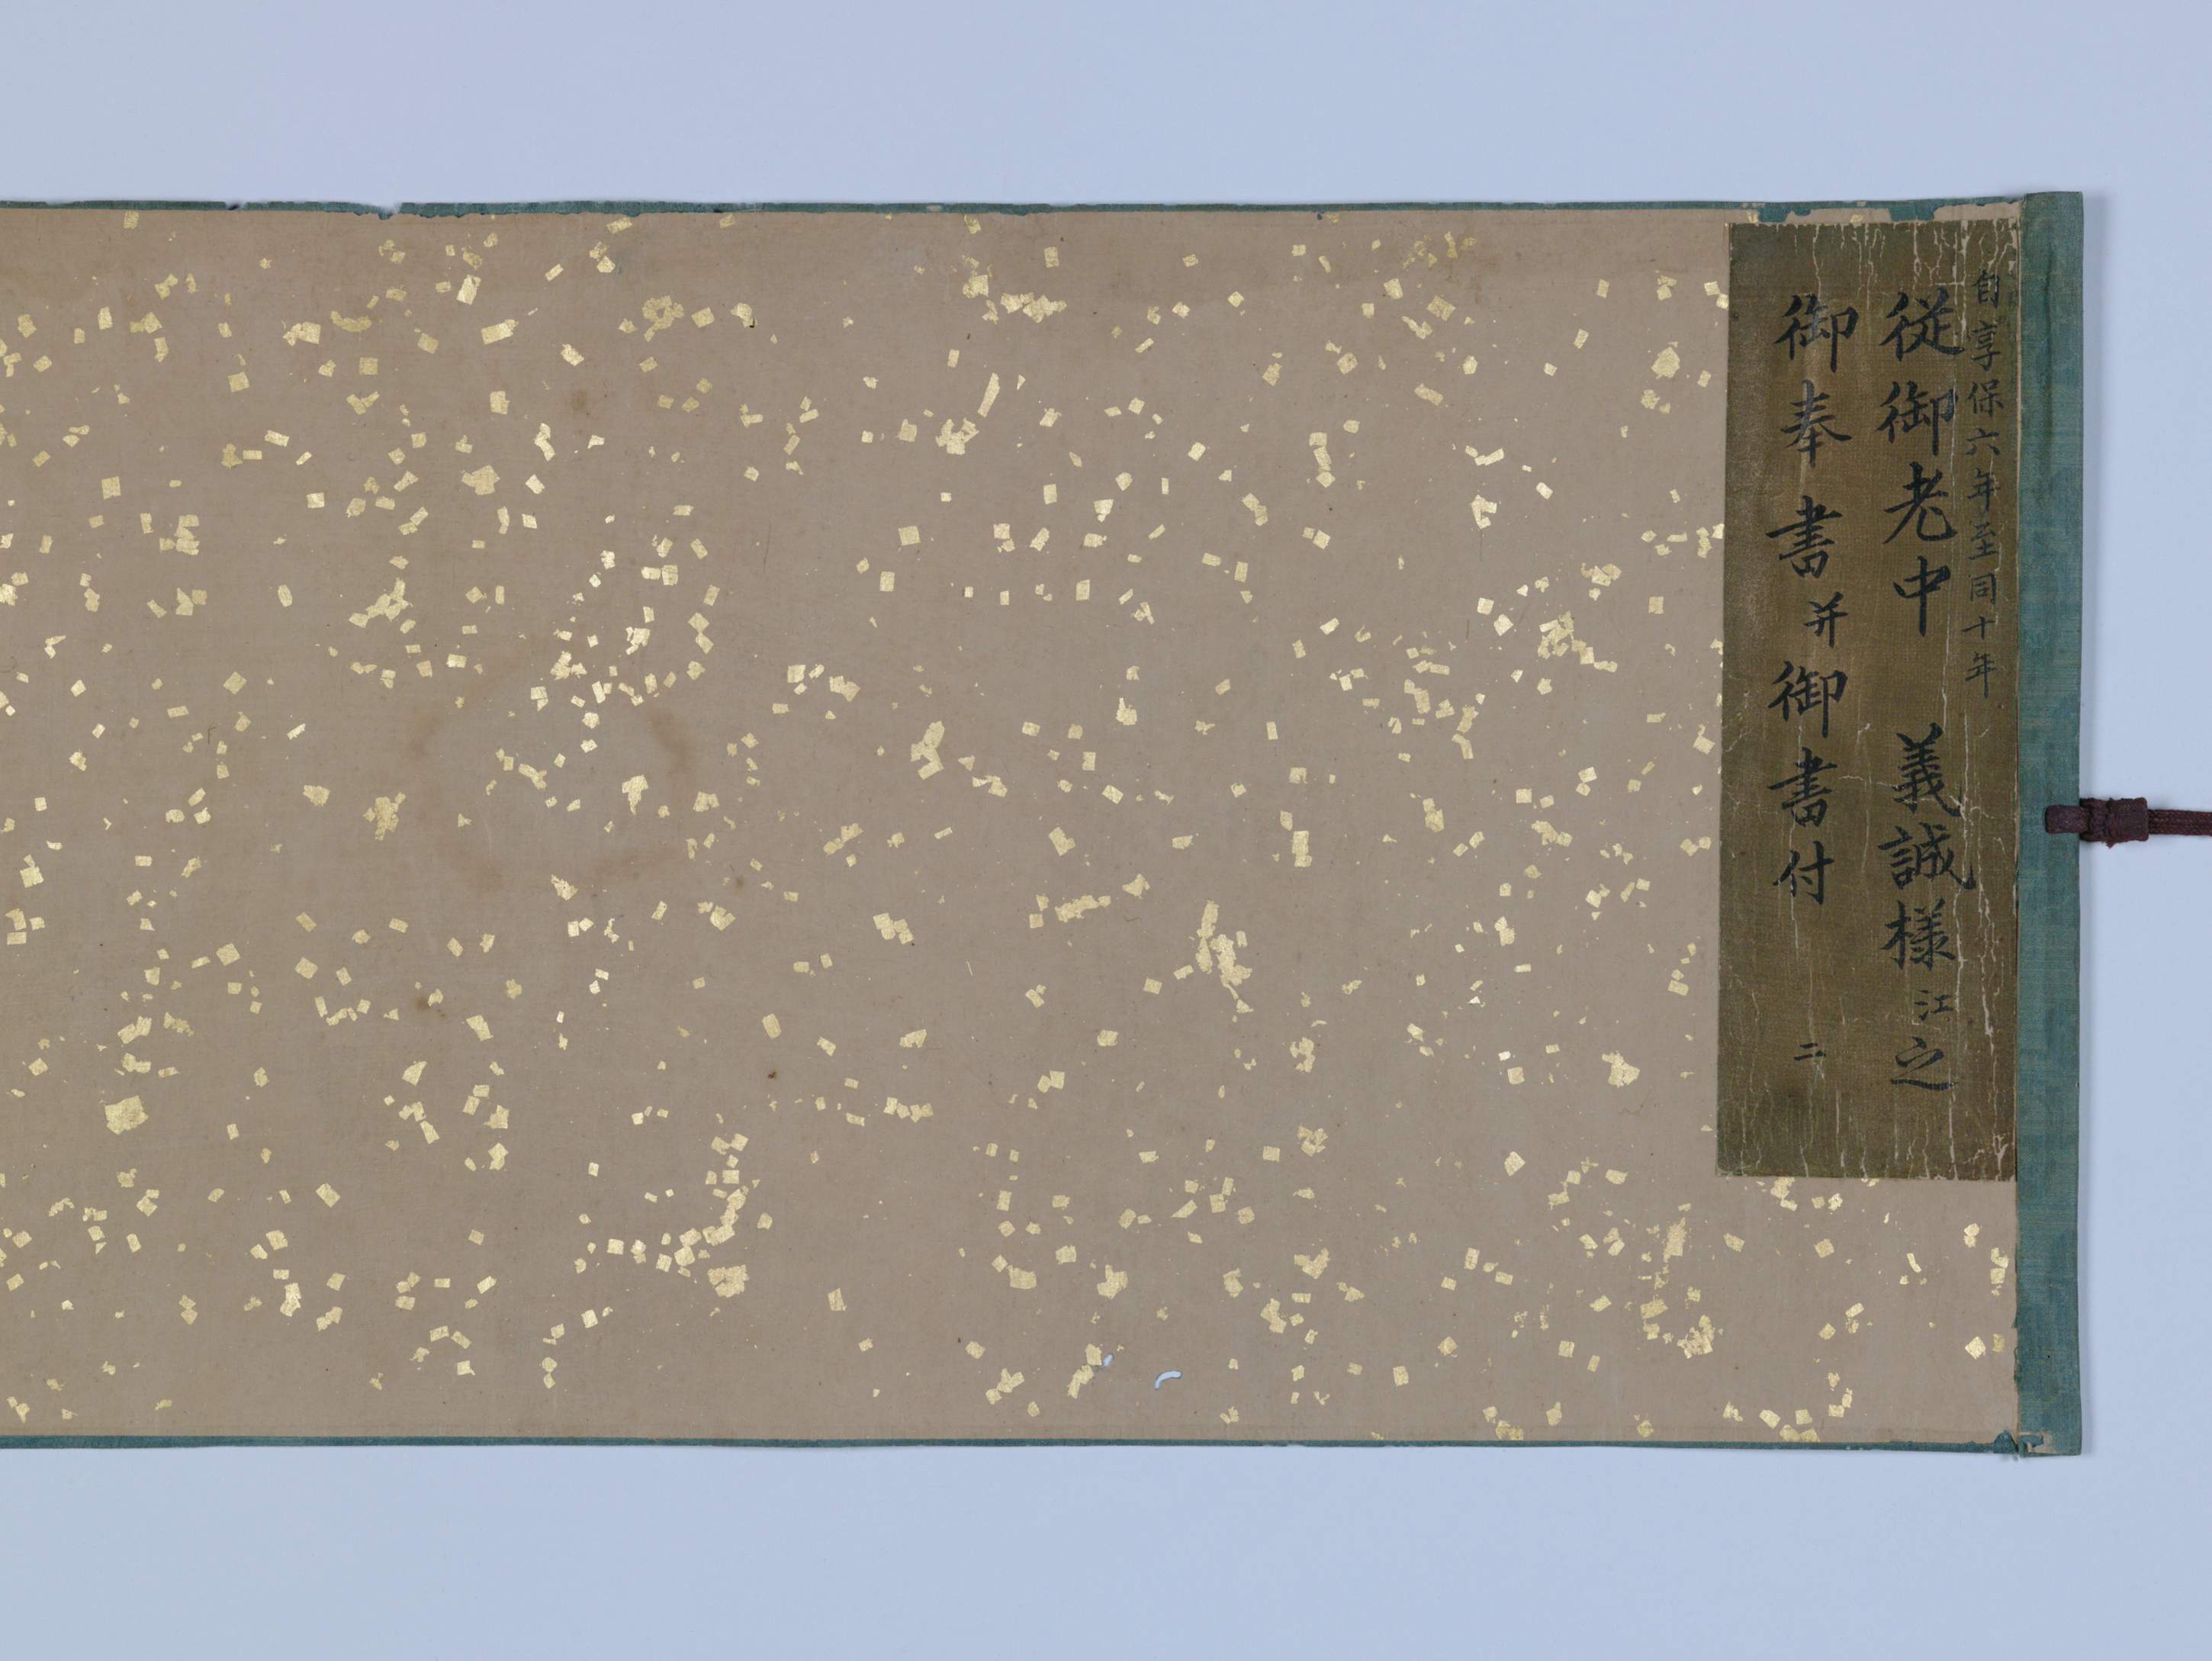 自享保六年至同十年
従御老中 義誠様江之
御奉書并御書付 二